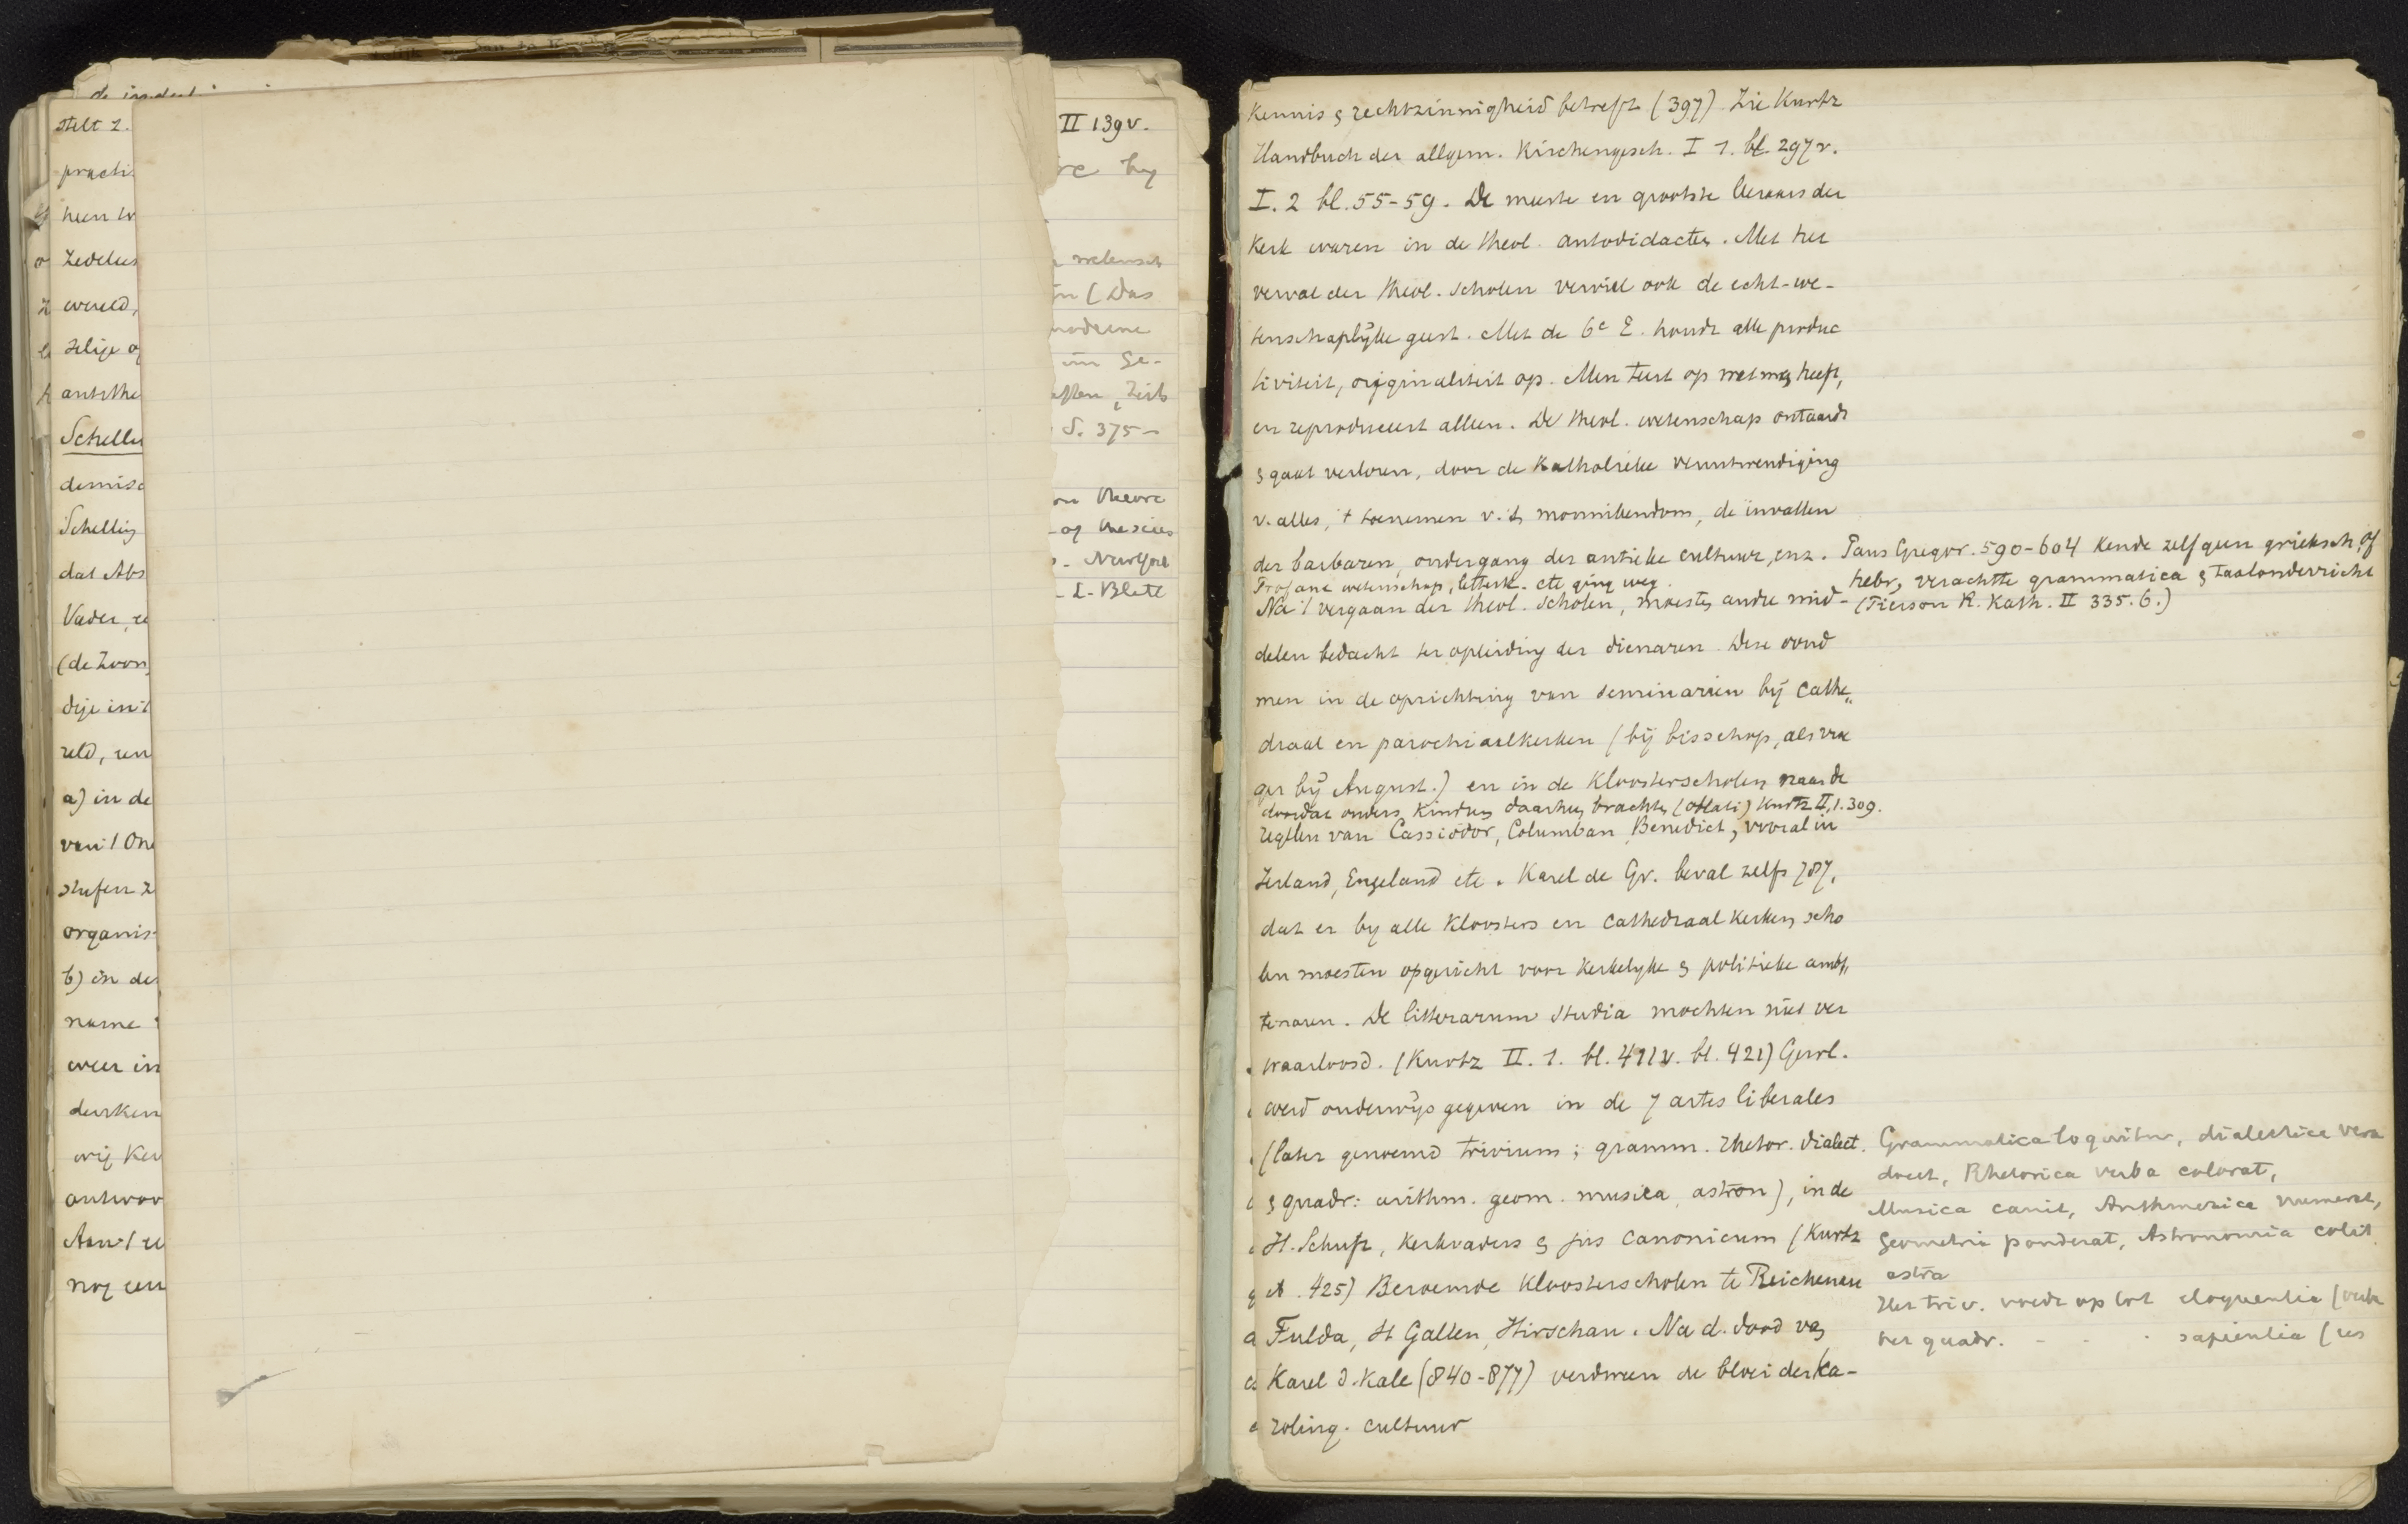 stelt z.
practi
heen w
Zedelees
wereld,
zelige o
antithe
Schelli
demisc
Schelling
dat Abs
Vader, e
(de Zoon
dije in 't
reld, een
a) in de
van 't One
stufen z
organis
b) in de
name
weer in
denken
vrij Ken
antwoor
Aan 't
nog een
II 139v.
S. 375-
kennis & rechtzinnigheid betreft (397) Zie Kurtz
Handbuch der allgem. Kirchengesch. I 1. bl. 297v.
I. 2 bl. 55-59. De meeste en grootste leeraars der
Kerk waren in de theol. autodidacten. Met het
verval der theol. scholen verviel ook de echt-we-
tenschaplijke geest. Met de 6e E. houdt alle produc
tiviteit, originaliteit op. Men teert op wat men heeft,
en reproduceert alleen. De theol. wetenschap ontaardt
& gaat verloren, door de Katholieke veruitwendiging
v. alles, 't toenemen v. 't monnikendom, de invallen
der barbaren, ondergang der antieke cultuur, enz. Paus Gregor. 590-604 kende zelf geen grieksch of
Profane wetenschap, letterk. etc ging weg. hebr, verachtte grammatica & taalonderricht
Na 't vergaan der theol. scholen, moesten andre mid- (Pierson R. Kath. II 335.6.)
delen bedacht ter opleiding der dienaren. Deze vond
men in de oprichting van seminariën bij Cathe„
draal en parochiaalkerken (bij bisschop, als vroe
ger bij August.) en in de Kloosterscholen naar de
doordat ouders kinderen daarheen brachten (oblati) Kurtz II, 1. 309.
regelen van Cassiodor, Columban, Benedict, vooral in
Ierland, Engeland etc. Karel de Gr. beval zelfs 787,
dat er by alle Kloosters en Cathedraal Kerken scho
len moesten opgericht voor kerkelyke & politieke amb„
tenaren. De litterarum studia mochten niet ver
waarloosd. (Kurtz II. 1. bl. 411v. bl. 421) Geerl.
werd onderwijs gegeven in de 7 artes liberales
(later genoemd trivium; gramm. rhetor. dialect.
& quadr: arithm. geom. musica, astron), in de
H. Schrift, Kerkvaders & jus canonicum (Kurtz
425) Beroemde Kloosterscholen te Reichenau
Fulda, St Gallen, Hirschau. Na d. dood van
Karel d. Kale (840-877) verdween de bloei der Ka-
roling. cultuur
Grammatica loquitur, dialectica vera
docet, Rhetorica verba colorat,
Musica canit, Arithmetica numerat,
Geometria ponderat, Astronomia colit
astra
Het triv. voedt op tot eloquentia (verba
het quadr. - - - sapientia (res